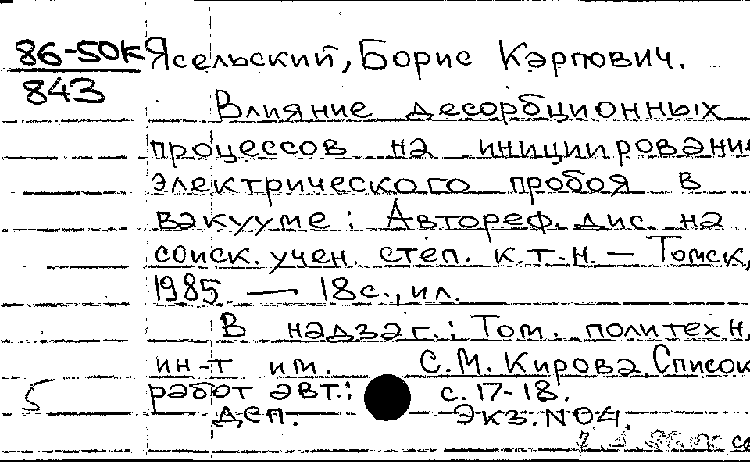 86-50к Ясельский, Борис Карпович.
843
Влияние десорбционных
процессов на инициировани
электрического пробоя в
вакууме: Автореф. дис. на
соиск. учен. степ. к.т.н. — Томск,
1985. — 18с., ил.
В надзаг.: Том. политехн.
ин-т им. С.М. Кирова. Список
работ авт.: с. 17-18.
5 Деп. Экз. №04.